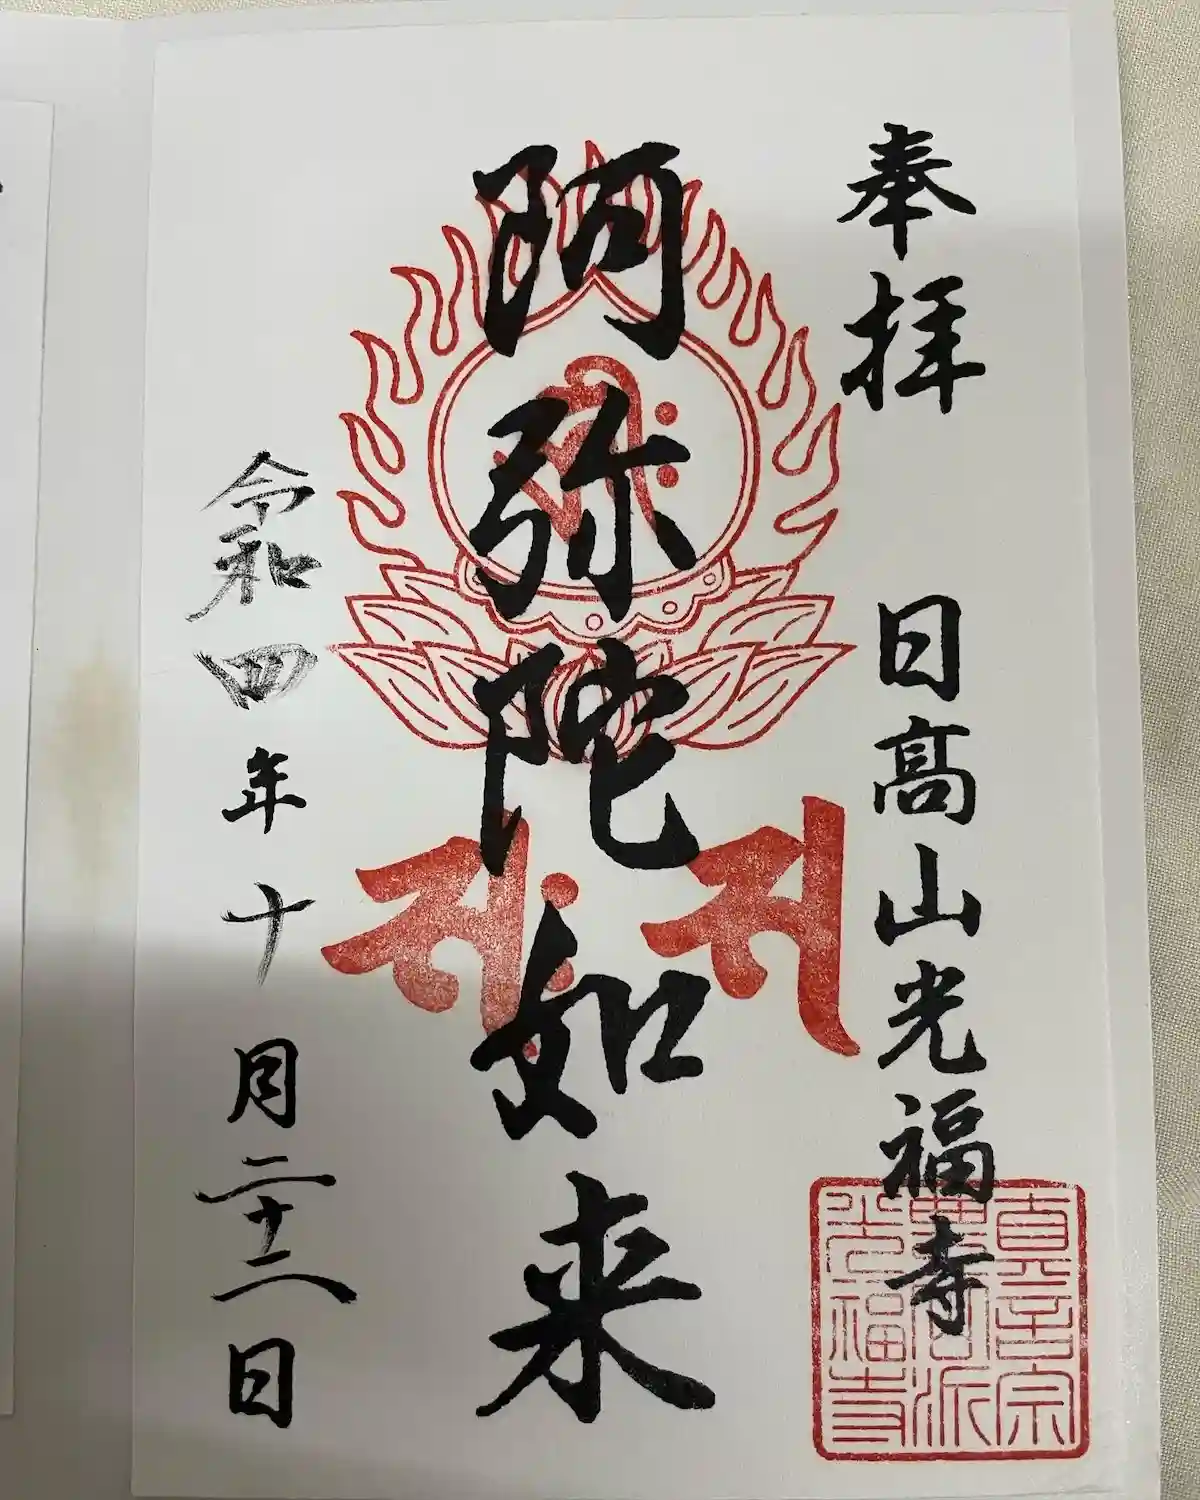 奉拝　日高山光福寺
阿弥陀如来
令和四年十月二十二日
真言宗
豊山派
光福寺